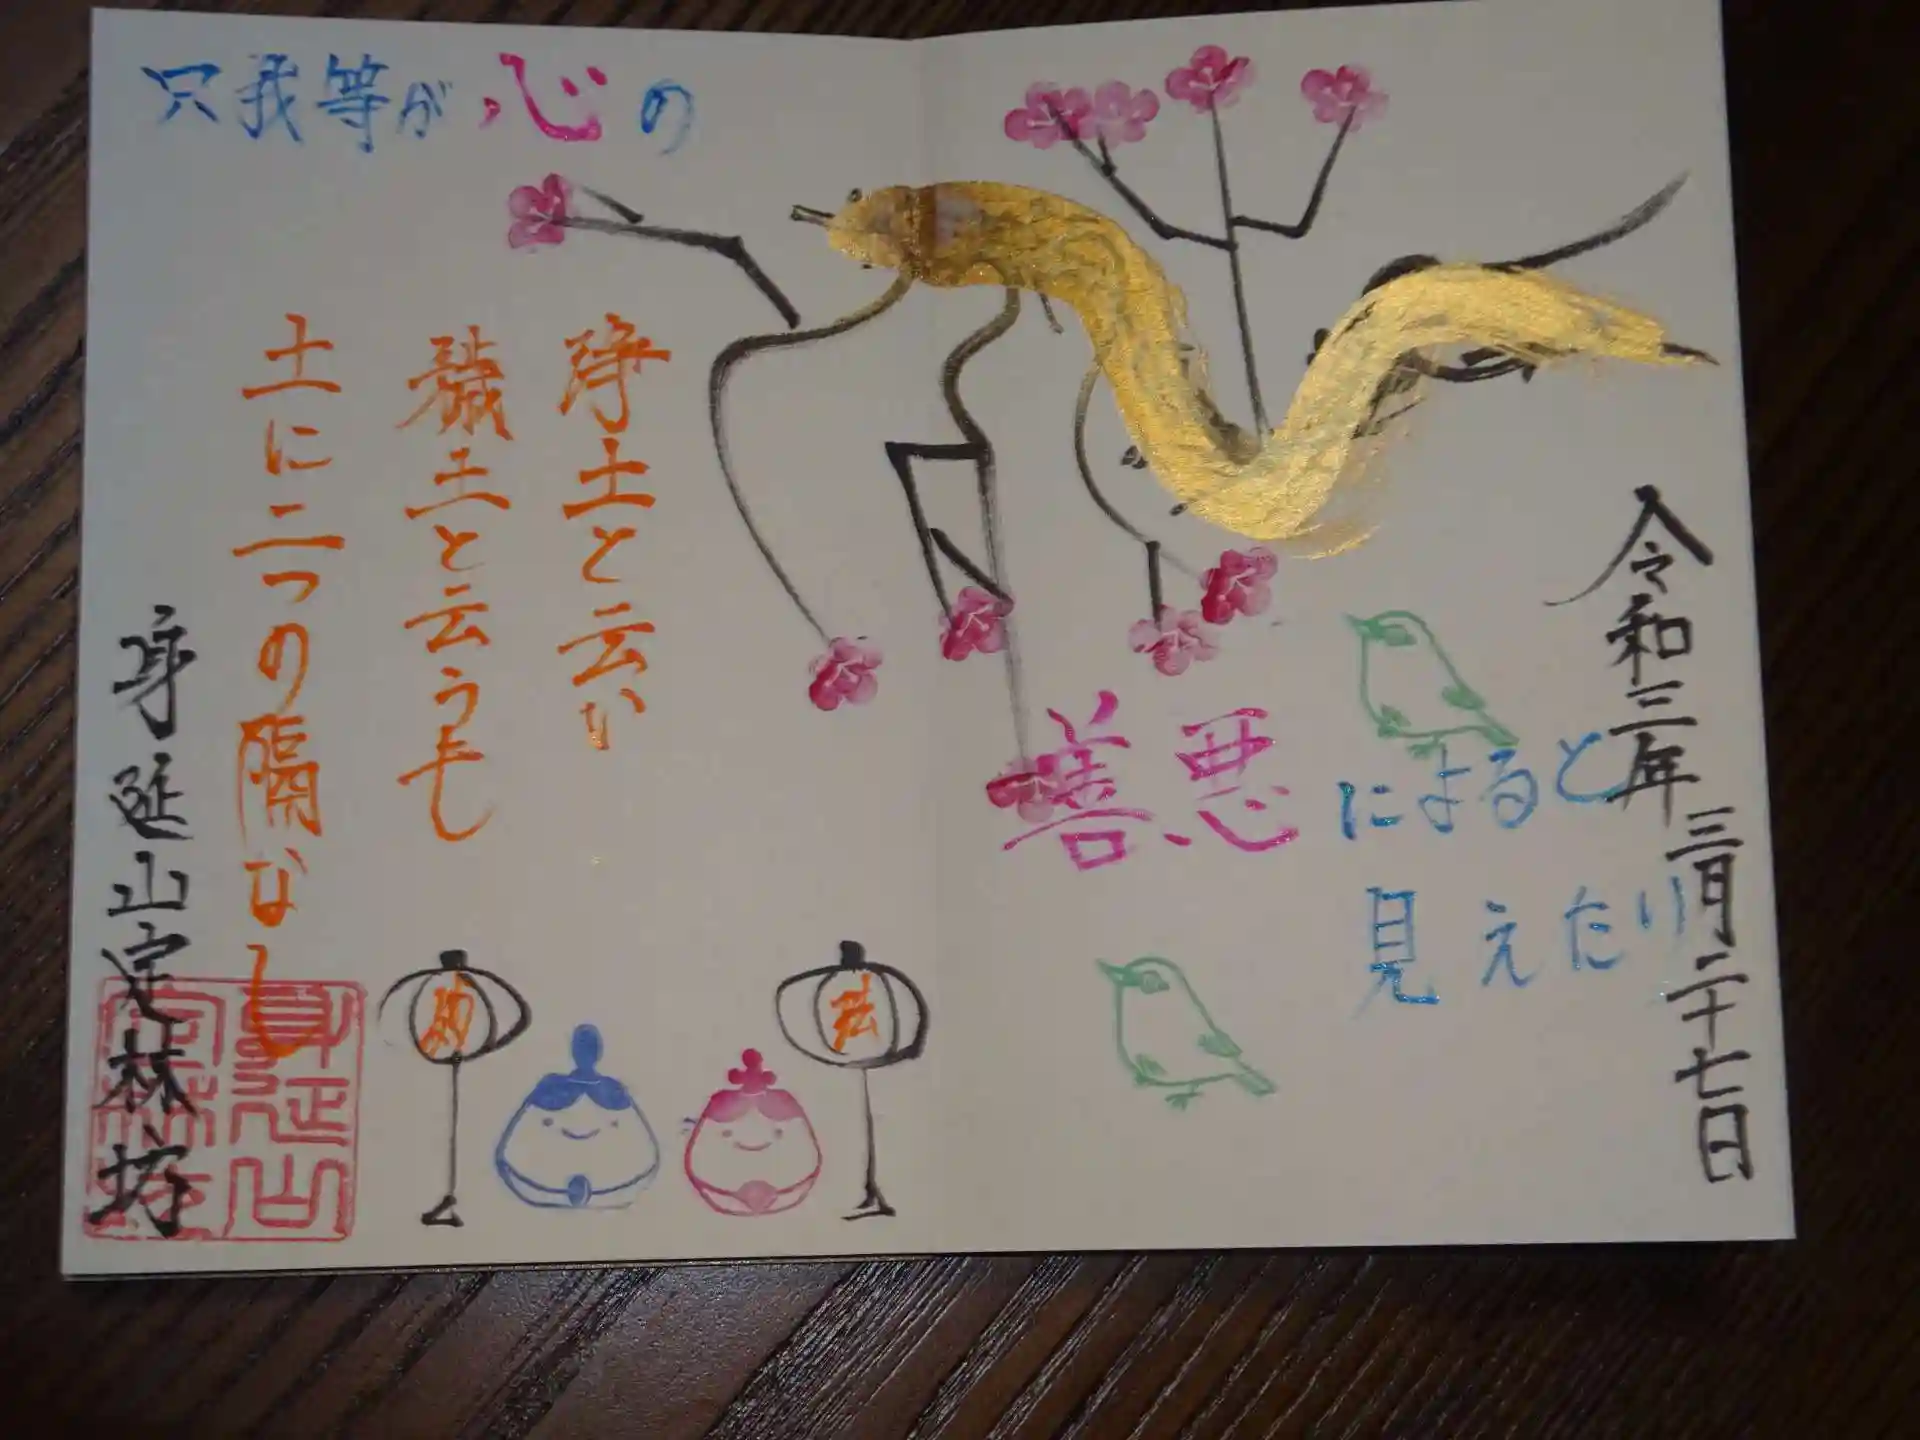 令和三年三月二十七日
浄土と云い
穢土と云うも
土に二つの隔なし
只我等が心の
善悪によると
見えたり
妙
法
身延山定林坊
身延山
定林坊